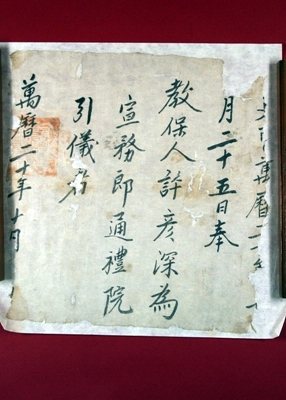 萬曆二
月二十五日奉
教保人許彦深為
宣務郎通禮院
引儀者
萬曆二十年十月